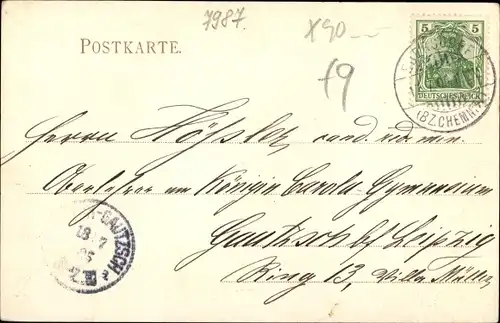 7987.
x90.-
f9
POSTKARTE.
5 5
DEUTSCHES REICH
(BZ.CHEMN
Herrn Hößler, cand. rer. min.
Oberlehrer am Königin Carola Gymnasium
Gautzsch bf Leipzig
Ring 13, Villa Müller
-GAUTZSCH
18 7
05